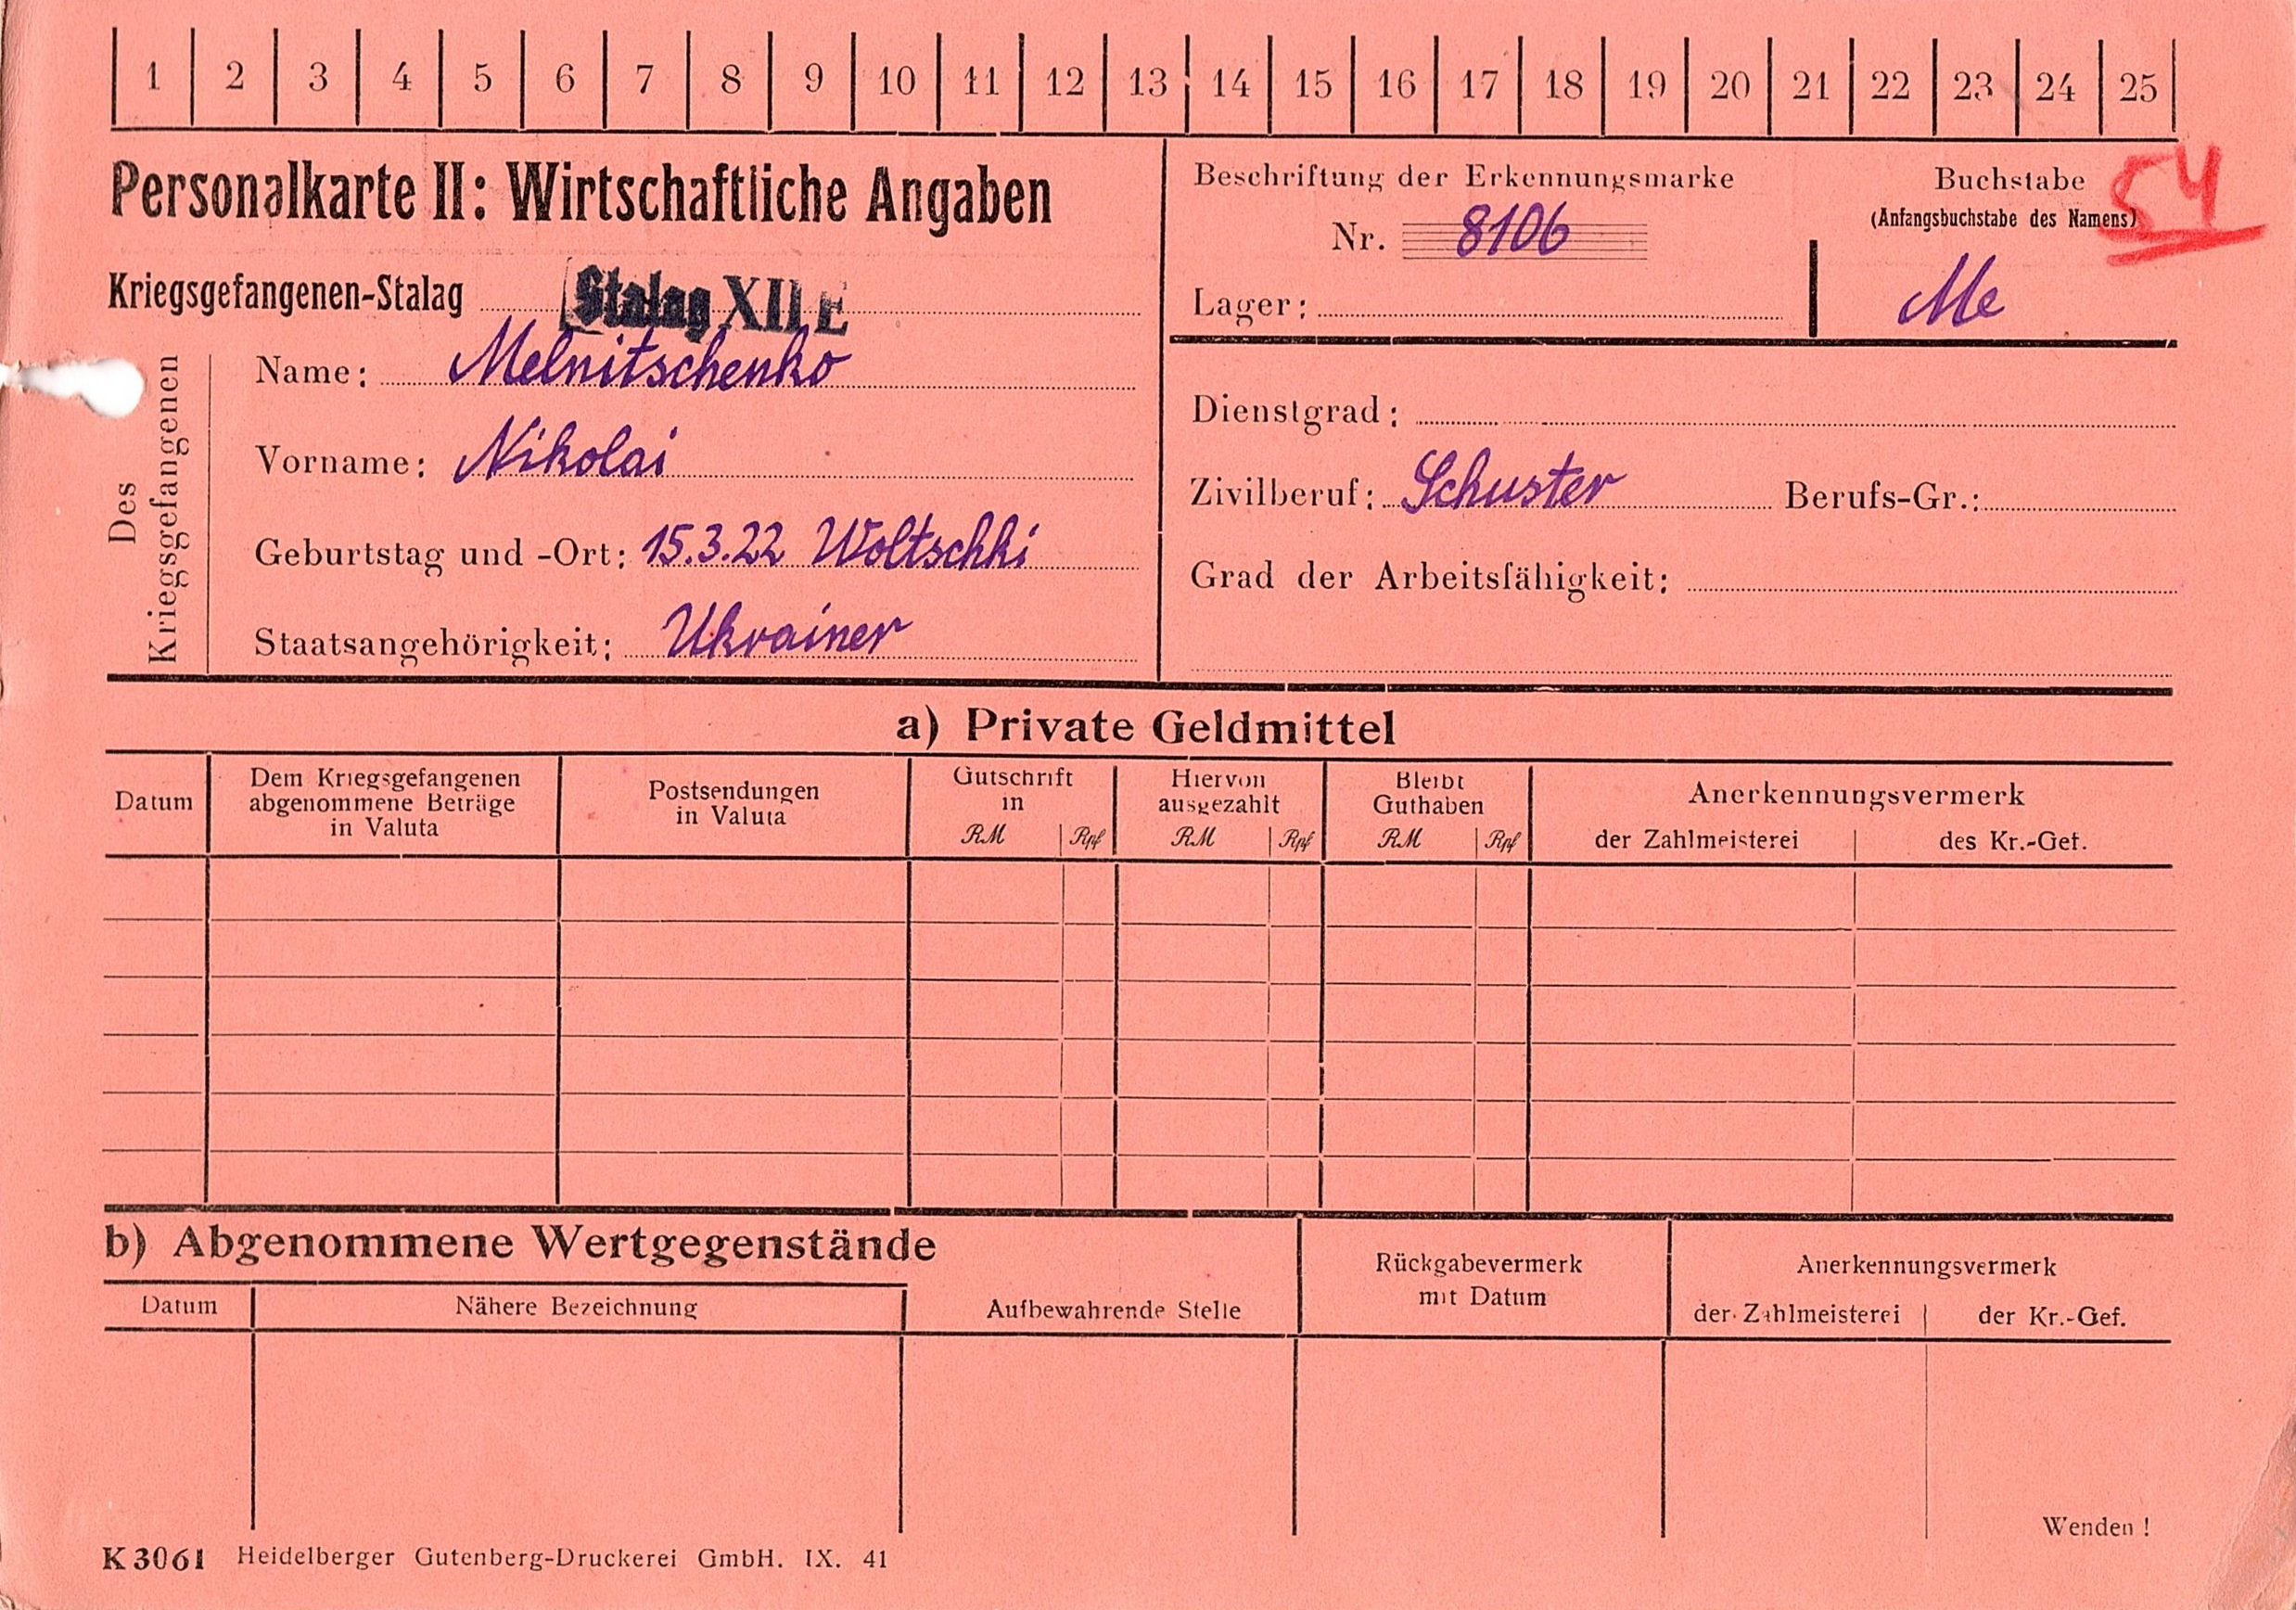 1 2 3 4 5 6 7 8 9 10 11 12 13 14 15 16 17 18 19 20 21 22 23 24 25
Personalkarte II: Wirtschaftliche Angaben
Kriegsgefangenen-Stalag Stalag XII E
Beschriftung der Erkennungsmarke
Nr. 8106
Lager:
Buchstabe
(Anfangsbuchstabe des Namens)
54
Me
Des
Kriegsgefangenen
Name: Melnitschenko
Vorname: Nikolai
Geburtstag und -Ort: 15.3.22 Woltschki
Staatsangehörigkeit: Ukrainer
Dienstgrad:
Zivilberuf: Schuster Berufs-Gr.:
Grad der Arbeitsfähigkeit:
a) Private Geldmittel
Datum
Dem Kriegsgefangenen
abgenommene Beträge
in Valuta
Postsendungen
in Valuta
Gutschrift
in
RM Rpf
Hiervon
ausgezahlt
RM Rpf
Bleibt
Guthaben
RM Rpf
Anerkennungsvermerk
der Zahlmeisterei des Kr.-Gef.
b) Abgenommene Wertgegenstände
Datum Nähere Bezeichnung
Aufbewahrende Stelle
Rückgabevermerk
mit Datum
Anerkennungsvermerk
der Zahlmeisterei der Kr.-Gef.
Wenden !
K 3061 Heidelberger Gutenberg-Druckerei GmbH. IX. 41